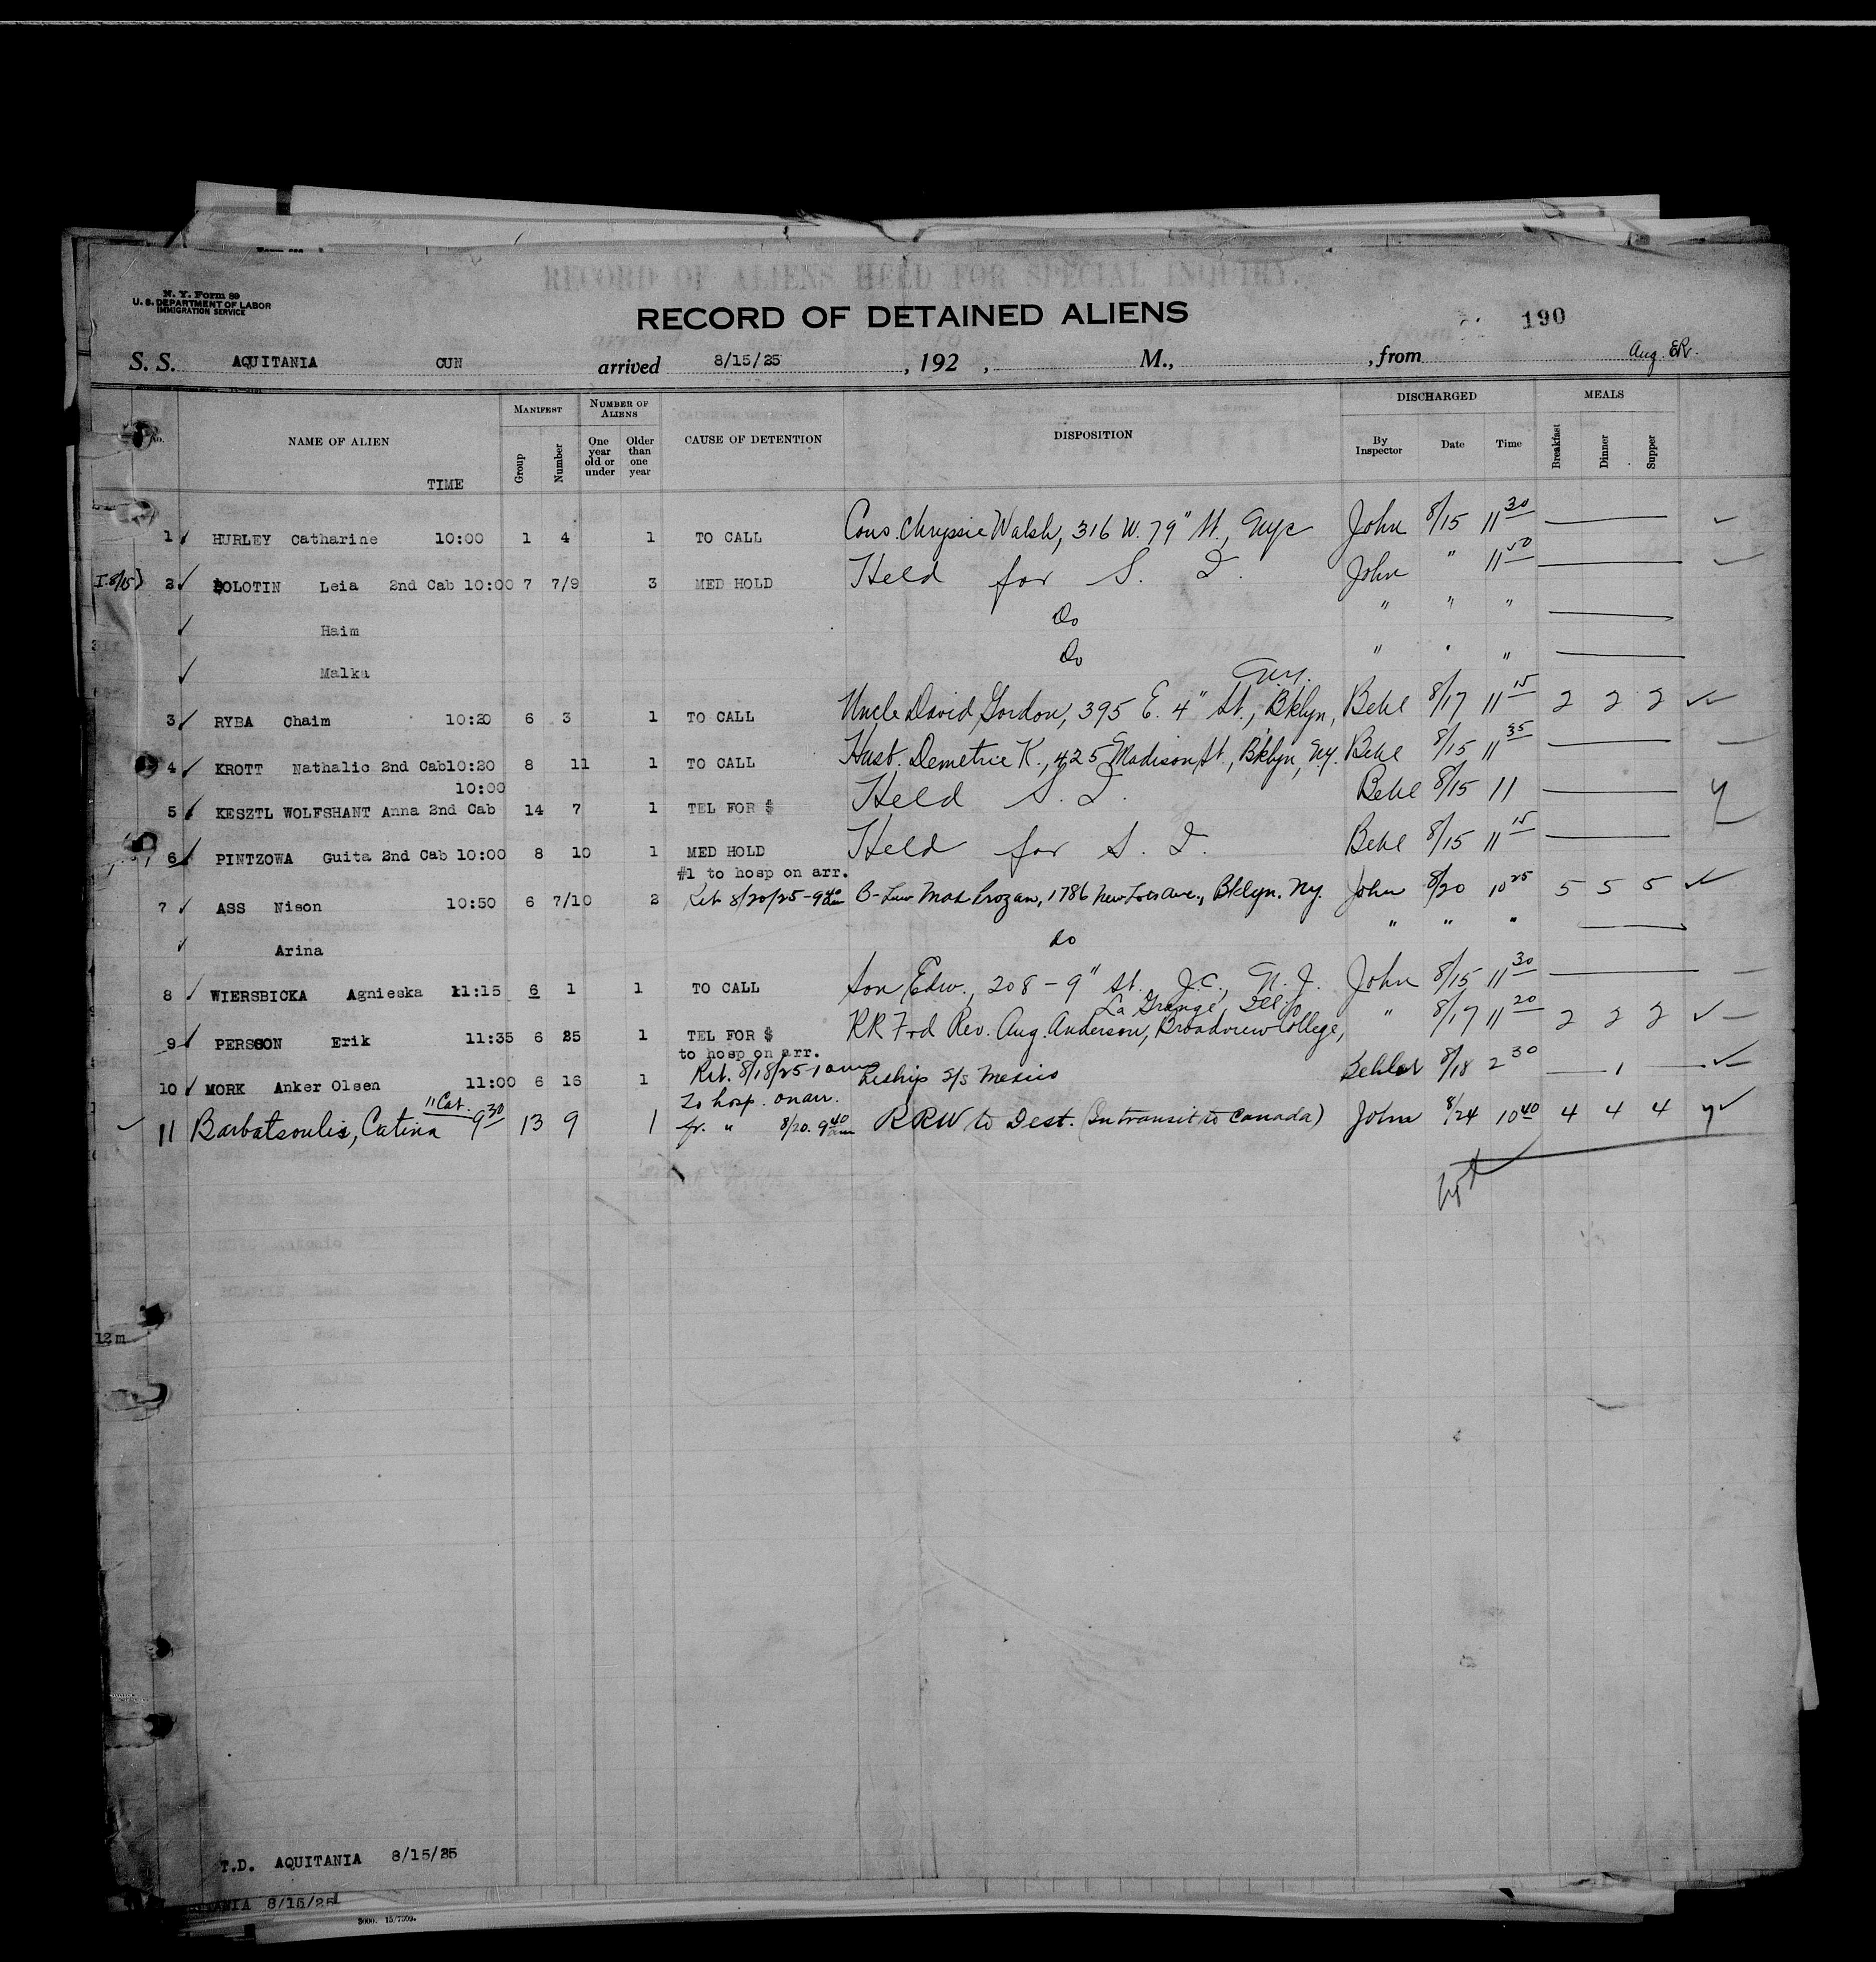 RECORD OF ALIENS HELD FOR SPECIAL INQUIRY.
N. Y. Form 89
U. S. DEPARTMENT OF LABOR
IMMIGRATION SERVICE
RECORD OF DETAINED ALIENS
190
S. S. AQUITANIA CUN arrived 8/15/25, 192 , M., , from Aug.
No. NAME OF ALIEN TIME MANIFEST Group Number NUMBER OF ALIENS One year old or under Older than one year CAUSE OF DETENTION DISPOSITION DISCHARGED By Inspector Date Time MEALS Breakfast Dinner Supper
1 ✓ HURLEY Catharine 10:00 1 4 1 TO CALL Cous. Chryssie Walsh, 316 W. 79" St., NYC John 8/15 11 30
2 ✓ BOLOTIN Leia 2nd Cab 10:00 7 7/9 3 MED HOLD Held for S. I. John " 11 50
✓ Haim Do " " "
✓ Malka Do " " "
3 ✓ RYBA Chaim 10:20 6 3 1 TO CALL Uncle David Gordon, 395 E. 4" St., Bklyn, N.Y. Behl 8/17 11 15 2 2 2
4 ✓ KROTT Nathalie 2nd Cab 10:20 8 11 1 TO CALL Husb. Demetrie K., 425 Madison St., Bklyn, N.Y. Behl 8/15 11 35
10:00
5 ✓ KESZTL WOLFSHANT Anna 2nd Cab 14 7 1 TEL FOR $ Held S. I. Behl 8/15 11
6 ✓ PINTZOWA Guita 2nd Cab 10:00 8 10 1 MED HOLD Held for S. I. Behl 8/15 11 15
#1 to hosp on arr.
7 ✓ ASS Nison 10:50 6 7/10 2 Ret 8/20/25 - 9 40 am B-Law Max Prozan, 1786 New Lots Ave., Bklyn. N.Y. John 8/20 10 25 5 5 5
✓ Arina do " " "
8 ✓ WIERSBICKA Agnieska 11:15 6 1 1 TO CALL Son Edw., 208 - 9" St. J.C., N. J. John 8/15 11 30
La Grange, Ill.
9 ✓ PERSSON Erik 11:35 6 25 1 TEL FOR $ RR Frd Rev. Aug. Anderson, Broadview College, " 8/17 11 20 2 2 2
to hosp on arr.
10 ✓ MORK Anker Olsen 11:00 6 16 1 Ret. 8/18/25-10 am Reship S/S Mexico 8/18 2 30 1
To hosp. on arr.
✓ 11 Barbatsoulis, Catina 9 30 13 9 1 fr. " 8/20. 9 40 am RRW to Dest. (In transit to Canada) John 8/24 10 40 4 4 4
12 m
T.D. AQUITANIA 8/15/25
8/15/25
5000. 15/7509.